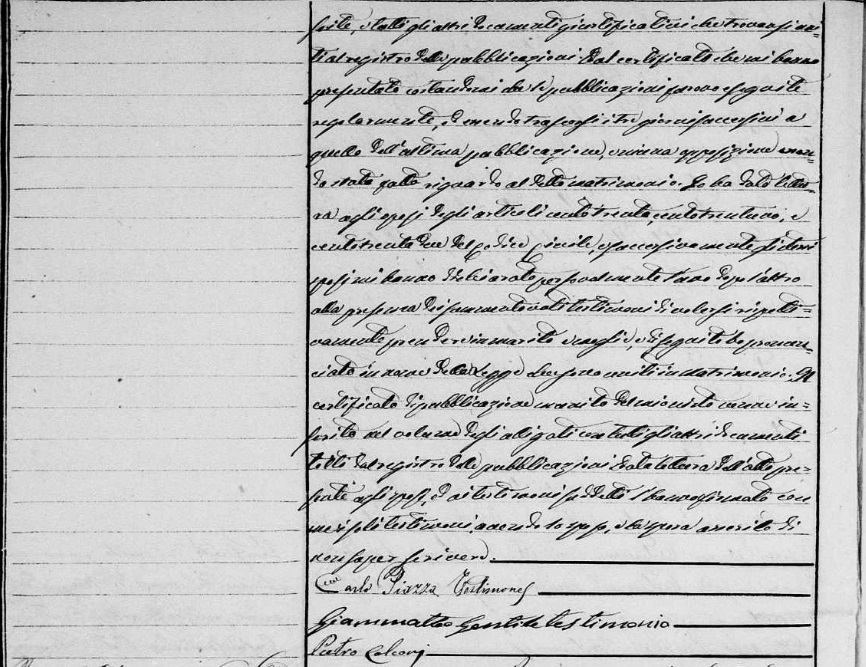 sente, e tutti gli altri documenti giustificativi che trovansi uni=
ti al registro delle pubblicazioni. Dal certificato che mi hanno
presentato constandomi che le pubblicazioni furono eseguite
regolarmente, ed essendo trascorsi i tre giorni successivi a
quello dell'ultima pubblicazione, e niuna opposizione essen=
do stata fatta riguardo al detto matrimonio. Io ho dato lettu=
ra agli sposi degli articoli centotrenta, centotrentuno, e
centotrentadue del Codice Civile, e successivamente gli stessi
sposi mi hanno dichiarato personalmente l'uno dopo l'altro
alla presenza dei summentovati testimoni di volersi rispetti=
vamente prendere in marito e moglie, e di seguito ho pronun=
ciato in nome della Legge che sono uniti in matrimonio. Il
certificato di pubblicazione munito del mio visto venne in=
serito nel volume degli allegati con tutti gli altri documenti
tolti dal registro delle pubblicazioni. Data lettura dell'atto pre=
sente agli sposi, ed ai testimoni suddetti l'hanno firmato con
me i soli testimoni, avendo lo sposo, e la sposa asserito di
non saper scrivere.
Carlo Piazza Testimone
Giammatteo Gentile testimonio
Pietro